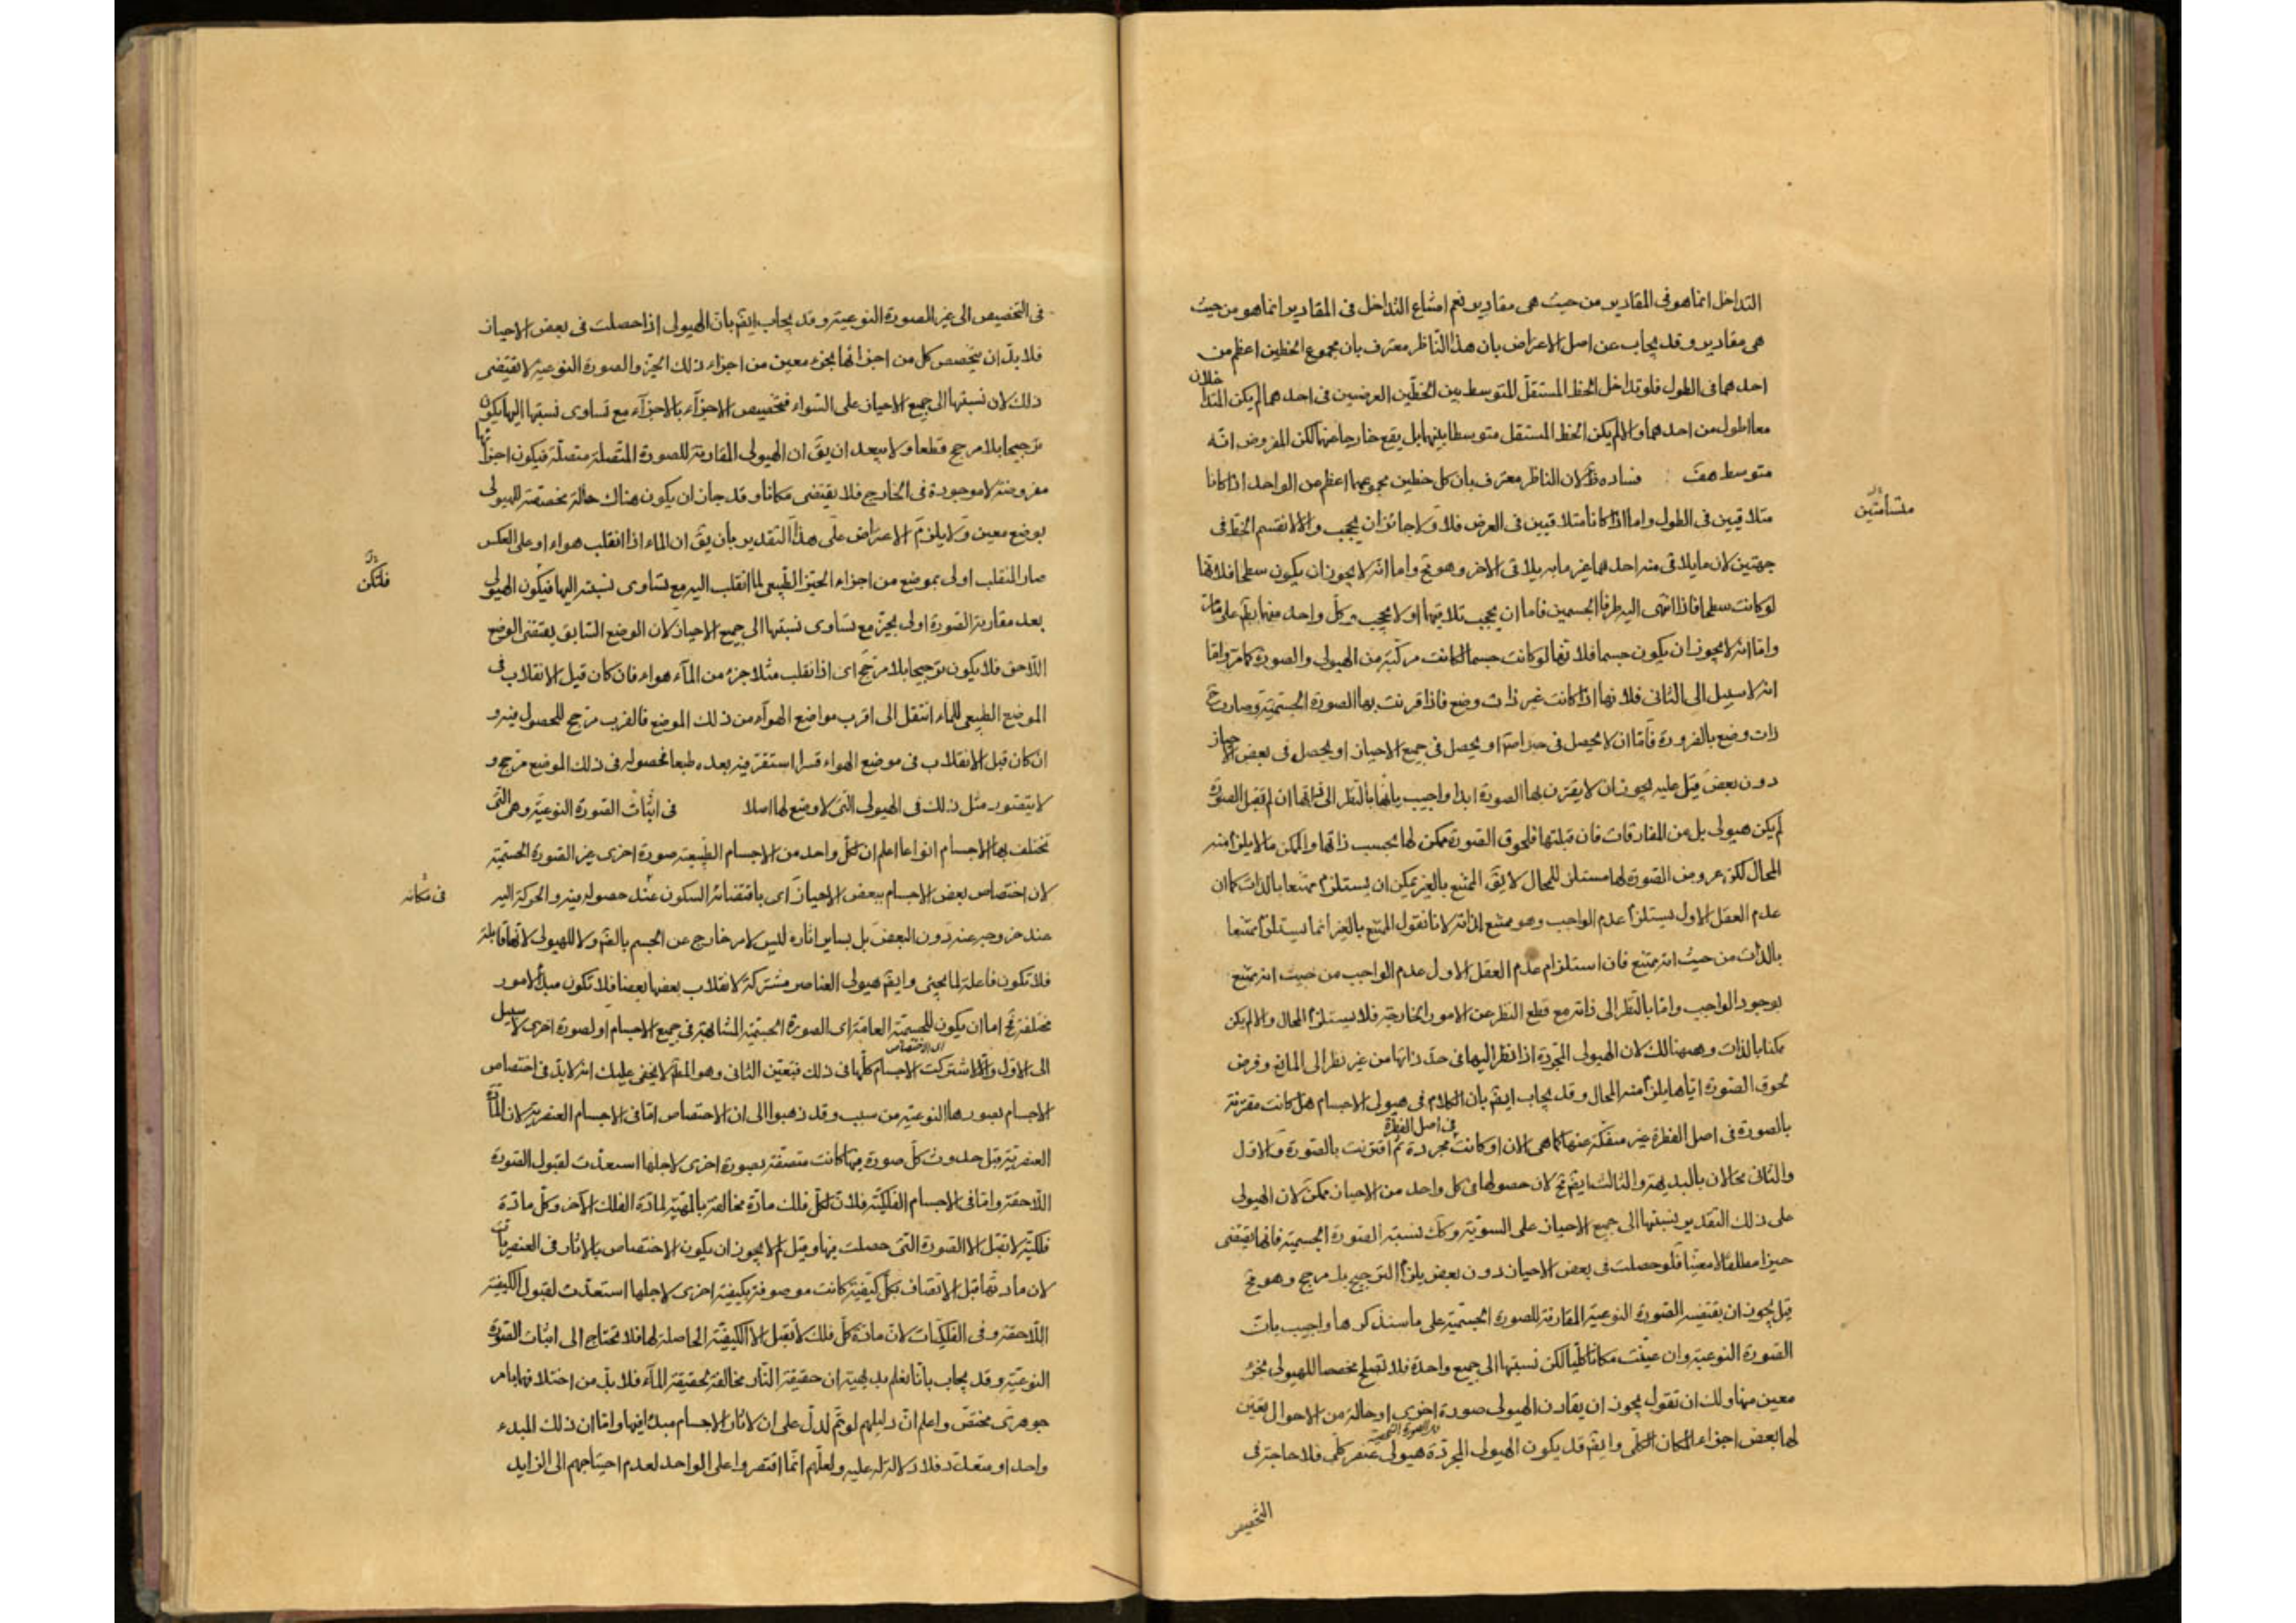 التداخل انما هو فى المقادير من حيث هى مقادير نعم امتناع التداخل فى المقادير انما هو من حيث
هى مقادير وقد يجاب عن اصل الاعتراض بان هذا الناظر معترف بان مجموع الخطين اعظم من
احدهما فى الطول فلو تداخل الخط المستقل المتوسط بين الخطين العرضيين فى احدهما لم يكن المتداخلان
معا اطول من احدهما والا لم يكن الخط المستقل متوسطا بينهما بل يقع خارجا عنهما لكن المفروض انه
متوسط هف فساده ظ لان الناظر معترف بان كل خطين مجموعهما اعظم من الواحد اذا كانا
متلاقيين فى الطول واما اذا كانا متلاقيين فى العرض فلا ولا جائز ان يحجب والا لانقسم الخط فى
متسامتين
جهتين لان ما يلاقى منه احدهما غير ما به يلاقى الاخر وهو مح واما انه لا يجوز ان يكون سطحا فلانها
لو كانت سطحا فاذا انتهى اليه طرفا الجسمين فاما ان يحجب تلاقيهما او لا يحجب وكل واحد منهما بط على ما مر
واما انه لا يجوز ان يكون جسما فلانها لو كانت جسما لكانت مركبة من الهيولى والصورة كما مر واما
انه لا سبيل الى الثانى فلانها اذا كانت غير ذات وضع فاذا اقرنت بها الصورة الجسمية وصارت ح
ذات وضع بالضرورة فاما ان لا يحصل فى حيز اصلا او يحصل فى جميع الاحياز او يحصل فى بعض الاحياز
دون بعض قيل عليه يجوز ان لا يقترن بها الصورة ابدا واجيب بانها بالنظر الى ذاتها ان لم تقبل الصورة
لم يكن هيولى بل من المفارقات فان قبلتها فلحوق الصورة ممكن لها بحسب ذاتها والممكن ما لا يلزم منه
المحال لكن عروض الصورة لها مستلزم للمحال لا يق الممتنع بالغير يمكن ان يستلزم ممتنعا بالذات كما ان
عدم العقل الاول يستلزم عدم الواجب وهو ممتنع لذاته لانا نقول الممتنع بالغير انما يستلزم ممتنعا
بالذات من حيث انه ممتنع فان استلزام عدم العقل الاول عدم الواجب من حيث انه ممتنع
بوجود الواجب واما بالنظر الى ذاته مع قطع النظر عن الامور الخارجية فلا يستلزم المحال والا لم يكن
ممكنا بالذات وههنا لك لان الهيولى المجردة اذا نظر اليها فى حد ذاتها من غير نظر الى المانع وفرض
لحوق الصورة اياها يلزم منه المحال وقد يجاب ايض بان الكلام فى هيولى الاجسام هل كانت مقترنة
بالصورة فى اصل الفطرة غير منفكة عنها كما هى الان او كانت مجردة ثم اقترنت بالصورة والاول
فى اصل الفطرة
والثانى محالان بالبديهة والثالث ايض مح لان حصولها فى كل واحد من الاحياز ممكن لان الهيولى
على ذلك التقدير نسبتها الى جميع الاحياز على السوية وكك نسبة الصورة الجسمية فانها يقتضى
حيزا مطلقا لا معينا فلو حصلت فى بعض الاحياز دون بعض يلزم الترجيح بلا مرجح وهو مح
قيل يجوز ان يقتضيه الصورة النوعية المقارنة للصورة الجسمية على ما سنذكرها واجيب بان
الصورة النوعية وان عينت مكانا كليا لكن نسبتها الى جميع واحدة فلا تصلح مخصصا للهيولى بجزء
معين منها ولك ان تقول يجوز ان يقارن الهيولى صورة اخرى او حالة من الاحوال يعين
لها بعض اجزاء المكان الكلى وايض قد يكون الهيولى المجردة هيولى عنصر كلى فلا حاجة فى
التخصيص
فى التخصيص الى غير الصورة النوعية وقد يجاب ايض بان الهيولى اذا حصلت فى بعض الاحياز
فلا بد ان يتخصص كل من اجزائها بجزء معين من اجزاء ذلك الحيز والصورة النوعية لا تقتضى
ذلك لان نسبتها الى جميع الاحياز على السواء فتخصيص الاجزاء بالاجزاء مع تساوى نسبتها اليها يكون
ترجيحا بلا مرجح قطعا ولا يبعد ان يق ان الهيولى المقارنة للصورة المتصلة متصلة فيكون اجزائها
مفروضة لا موجودة فى الخارج فلا يقتضى مكانا وقد جاز ان يكون هناك حالة مخصصة للهيولى
بوضع معين ولا يلزم الاعتراض على هذا التقدير بان يق ان الماء اذا انقلب هواء او على العكس
صار المنقلب اولى بموضع من اجزاء الحيز الطبيعى لما انقلب اليه مع تساوى نسبته اليها فيكون الهيولى
فلتكن
بعد مقارنة الصورة اولى بحيز مع تساوى نسبتها الى جميع الاحياز لان الوضع السابق يقتضى الوضع
اللاحق فلا يكون ترجيحا بلا مرجح اى اذا انقلب مثلا جزء من الماء هواء فان كان قبل الانقلاب فى
الموضع الطبيعى للماء انتقل الى اقرب مواضع الهواء من ذلك الموضع فالقرب مرجح للحصول فيه و
ان كان قبل الانقلاب فى موضع الهواء قسرا استقر فيه بعده طبعا فحصوله فى ذلك الموضع مرجح و
لا يتصور مثل ذلك فى الهيولى التى لا وضع لها اصلا فى اثبات الصورة النوعية وهى التى
تختلف بها الاجسام انواعا اعلم ان لكل واحد من الاجسام الطبيعية صورة اخرى غير الصورة الجسمية
لان اختصاص بعض الاجسام ببعض الاحياز اى باقتضائه السكون عند حصوله فيه والحركة اليه
فى مكانه
عند خروجه عنه دون البعض بل بساير اثاره ليس لامر خارج عن الجسم بالض ولا للهيولى لانها قابلة
فلا تكون فاعلة لما يجئ وايض هيولى العناصر مشتركة لانقلاب بعضها بعضا فلا تكون مبدأ لامور
مختلفة فح اما ان يكون للجسمية العامة اى الصورة الجسمية المتشابهة فى جميع الاجسام او لصورة اخرى لا سبيل
الى الاول والا لاشتركت الاجسام كلها فى ذلك فتعين الثانى وهو المط لا يخفى عليك انه لا بد فى اختصاص
اى الاختصاص
الاجسام بصورها النوعية من سبب وقد ذهبوا الى ان الاختصاص اما فى الاجسام العنصرية لان المادة
العنصرية قبل حدوث كل صورة فيها كانت متصفة بصورة اخرى لاجلها استعدت لقبول الصورة
اللاحقة واما فى الاجسام الفلكية فلان لكل فلك مادة مخالفة بالمهية لمادة الفلك الآخر وكل مادة
فلكية لا تقبل الا الصورة التى حصلت فيها وقيل لم لا يجوز ان يكون الاختصاص بالاثار فى العنصريات
لان مادتها قبل الاتصاف بكل كيفية كانت موصوفة بكيفية اخرى لاجلها استعدت لقبول الكيفية
اللاحقة وفى الفلكيات لان مادة كل فلك لا تقبل الا الكيفية الحاصلة لها فلا تحتاج الى اثبات الصورة
النوعية وقد يجاب بانا نعلم بديهة ان حقيقة النار مخالفة لحقيقة الماء فلا بد من اختلافهما بامر
جوهرى مختص واعلم ان دليلهم لو تم لدل على ان لاثار الاجسام مبدأ فيها واما ان ذلك المبدء
واحد او متعدد فلا دلالة له عليه ولعلهم انما اقتصروا على الواحد لعدم احتياجهم الى الزايد